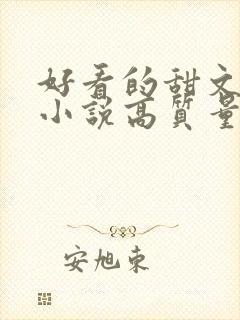 好看的甜文
小説高質量
安旭東